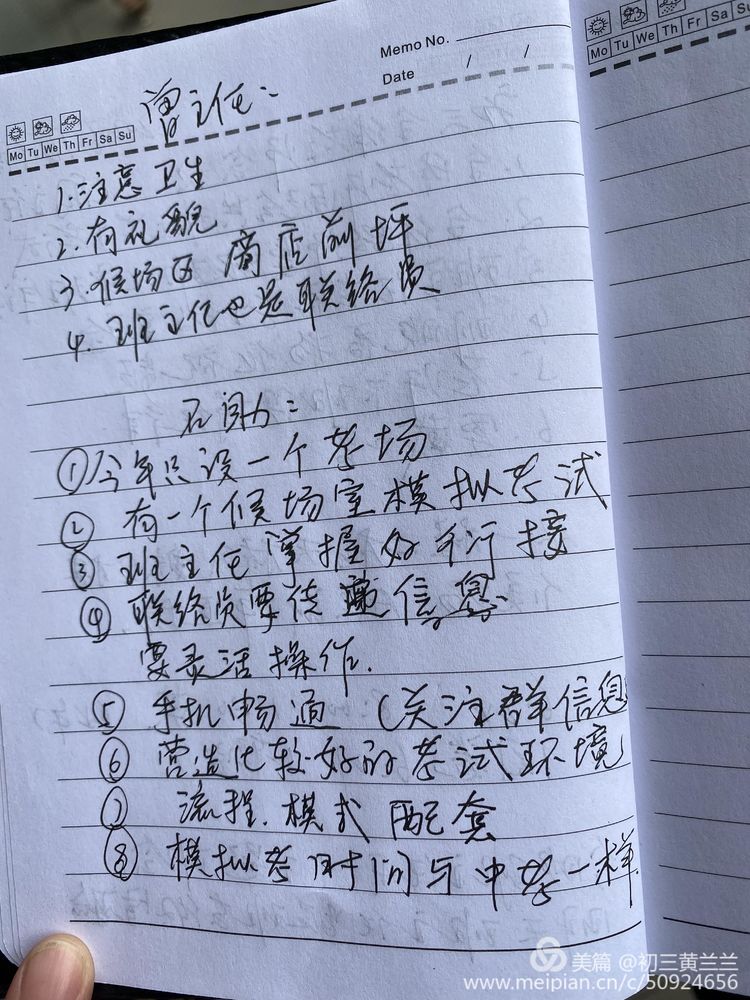 Memo No.
Date / /
Mo Tu We Th Fr Sa Su
曾主任：
1.注意卫生
2.有礼貌
3.候场区 商店前坪
4.班主任也是联络员
①今年只设一个考场
②有一个候场室模拟考试
③班主任掌握好衔接
④联络员要传递信息
要灵活操作.
⑤手机畅通（关注群信息
⑥营造比较好的考试环境
⑦流程.模式配套
⑧模拟考时间与中考一样
Mo Tu We Th Fr Sa
美篇 @初三黄兰兰
www.meipian.cn/c/50924656